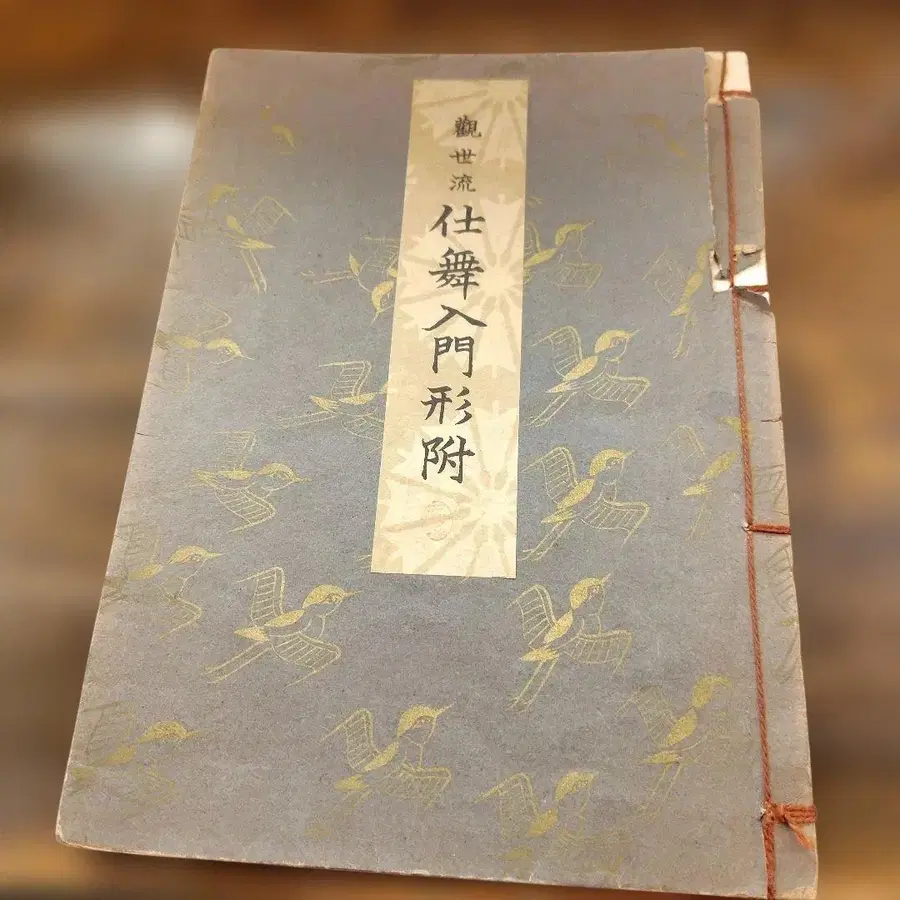 觀世流 仕舞入門形附